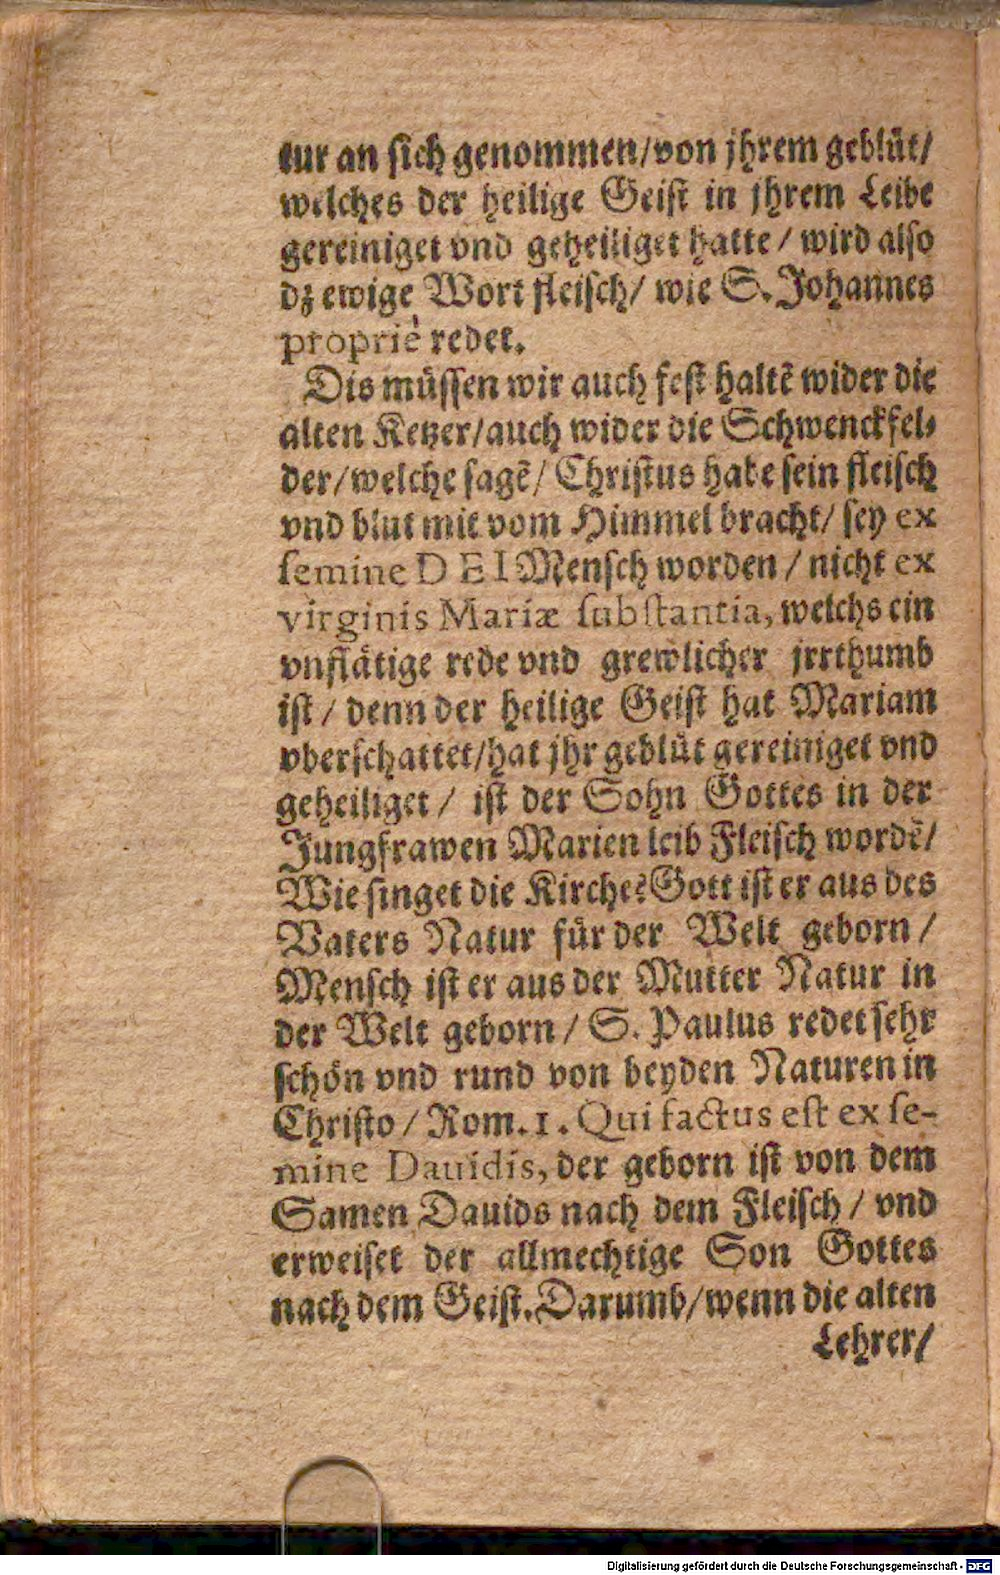 tur an sich genommen/von jhrem geblüt/
welches der heilige Geist in jhrem Leibe
gereiniget vnd geheiliget hatte / wird also
dz ewige Wort fleisch/ wie S. Johannes
propriè redet.
Dis müssen wir auch fest haltẽ wider die
alten Ketzer/auch wider die Schwenckfel-
der/welche sagẽ/ Christus habe sein fleisch
vnd blut mit vom Himmel bracht/ sey ex
semine DEI Mensch worden / nicht ex
virginis Mariæ substantia, welchs ein
vnflätige rede vnd grewlicher jrrthumb
ist / denn der heilige Geist hat Mariam
vberschattet/hat jhr geblüt gereiniget vnd
geheiliget / ist der Sohn Gottes in der
Jungfrawen Marien leib Fleisch wordẽ/
Wie singet die Kirche? Gott ist er aus des
Vaters Natur für der Welt geborn /
Mensch ist er aus der Mutter Natur in
der Welt geborn / S. Paulus redet sehr
schön vnd rund von beyden Naturen in
Christo / Rom. 1. Qui factus est ex se-
mine Dauidis, der geborn ist von dem
Samen Dauids nach dem Fleisch / vnd
erweiset der allmechtige Son Gottes
nach dem Geist. Darumb/wenn die alten
Lehrer/
Digitalisierung gefördert durch die Deutsche Forschungsgemeinschaft - DFG